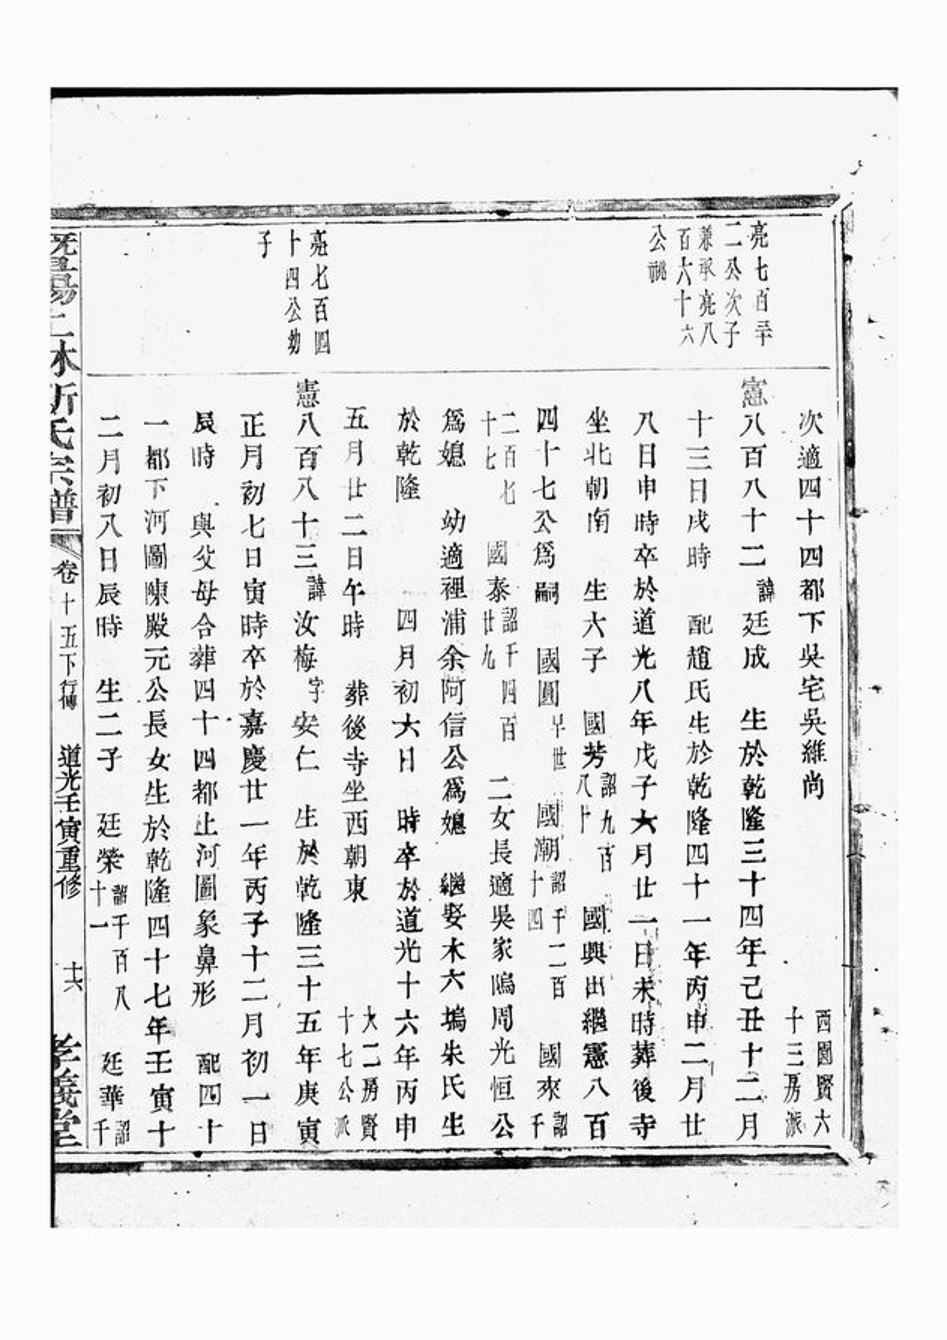 亮七百
二公次子
兼承亮八
百六十六
公祧
亮七百四
十四公幼
子
次適四十四都下吳宅吳維尚
西園賢六
十三房派
憲八百八十二諱廷成 生於乾隆三十四年己丑十二月
十三日戌時 配趙氏生於乾隆四十一年丙申二月廿
八日申時卒於道光八年戊子六月廿一日未時葬後寺
坐北朝南 生六子 國芳詔九百八十 國興出繼憲八百
四十七公為嗣 國圓早世 國潮詔千二百十四 國來詔千
二百七十七 國泰詔千四百廿九 二女長適吳家隖周光恒公
為媳 幼適裡浦余阿信公為媳 繼娶木六塢朱氏生
於乾隆 四月初六日 時卒於道光十六年丙申
五月廿二日午時 葬後寺坐西朝東
大二房賢
十七公派
憲八百八十三諱汝梅字安仁 生於乾隆三十五年庚寅
正月初七日寅時卒於嘉慶廿一年丙子十二月初一日
辰時 與父母合葬四十四都止河圖象鼻形 配四十
一都下河圖陳殿元公長女生於乾隆四十七年壬寅十
二月初八日辰時 生二子 廷榮詔千百八十一 廷華詔千
宗譜 卷十五下行傳 道光壬寅重修 十六 孝義堂